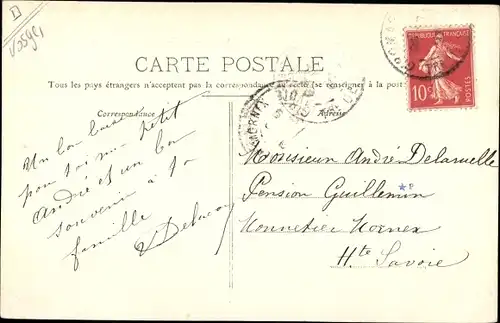 D
Vosges
CARTE POSTALE
Tous les pays étrangers n'acceptent pas la correspondance au recto (se renseigner à la poste)
Correspondance
Adresse
REPUBLIQUE FRANÇAISE
10c
POSTES
Un bon baiser
pour toi mon petit
André et un bon
souvenir à ta
famille
Monsieur André Delaruelle
Pension Guillemin
Monnetier Mornex
Hte Savoie